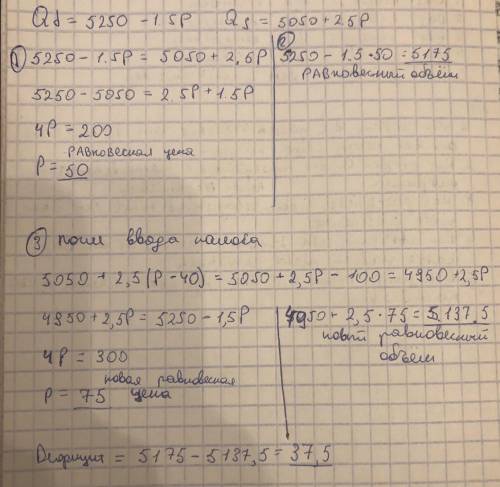 Qd = 5250 - 1.5P   Qs = 5050 + 2,5P
① 5250 - 1.5P = 5050 + 2,5P
5250 - 5050 = 2.5P + 1.5P
4P = 200
равновесная цена
P = 50
②
5250 - 1.5 · 50 = 5175
равновесный объём
③ после ввода налога
5050 + 2,5(P - 40) = 5050 + 2,5P - 100 = 4950 + 2,5P
4950 + 2,5P = 5250 - 1,5P
4P = 300
новая равновесная
P = 75 цена
4950 + 2,5 · 75 = 5.137,5
новый равновесный
объём
Дефицит = 5175 - 5137,5 = 37,5